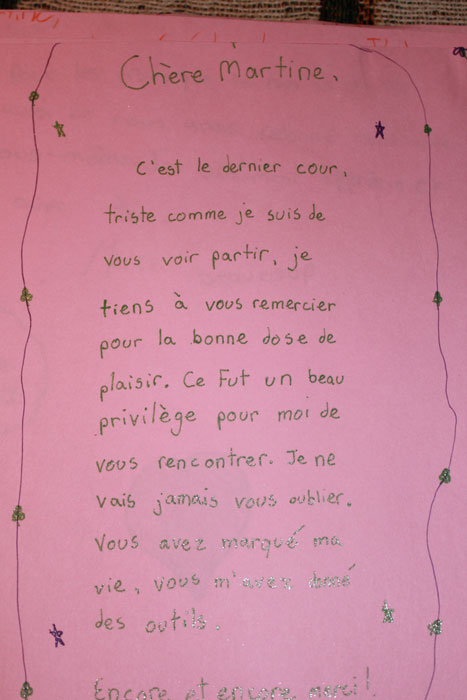 Chère Martine,
C'est le dernier cour,
triste comme je suis de
vous voir partir, je
tiens à vous remercier
pour la bonne dose de
plaisir. Ce Fut un beau
privilège pour moi de
vous rencontrer. Je ne
vais jamais vous oublier.
Vous avez marqué ma
vie, vous m'avez
des outils.
Encore et encore merci!